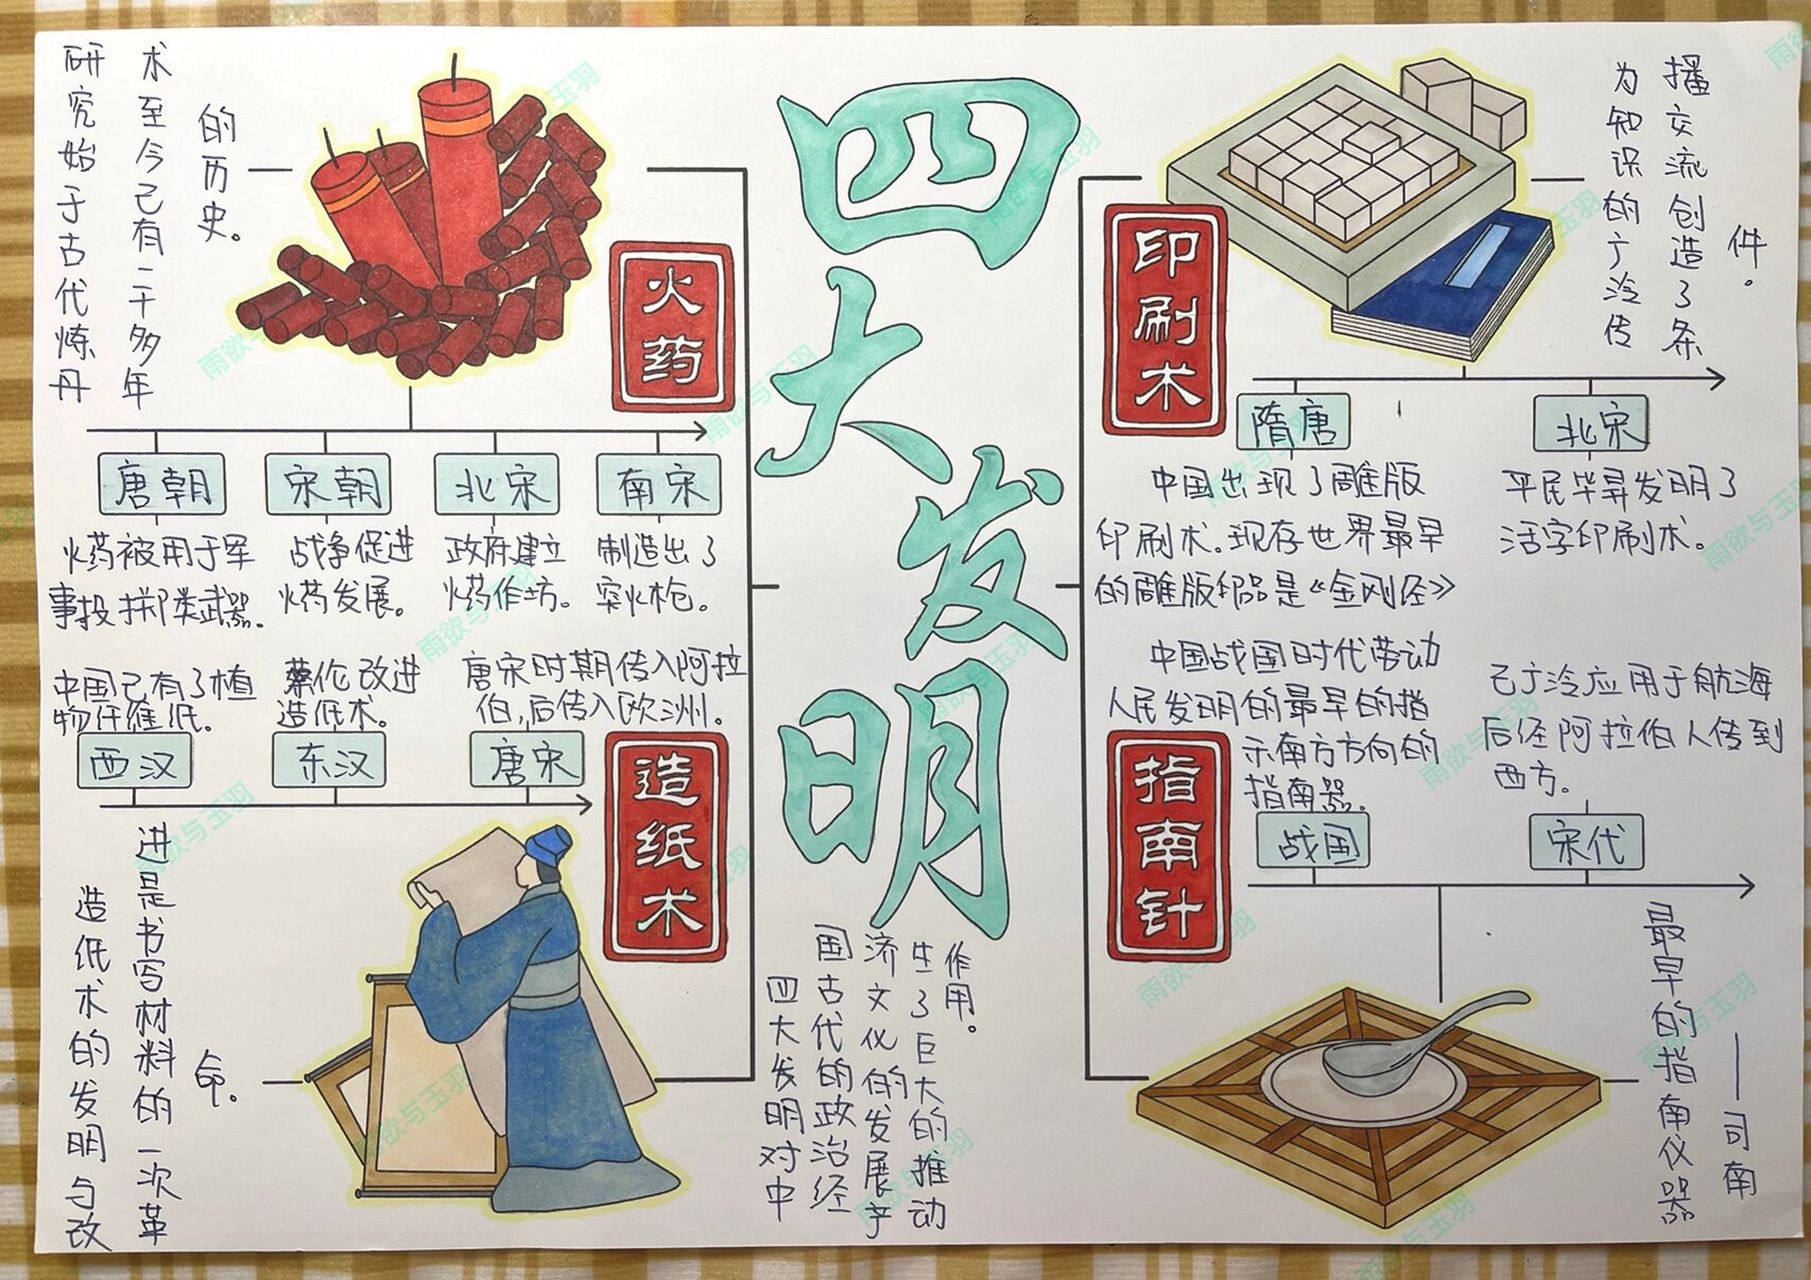 四大发明
四大发明对中
国古代的政治经
济文化的发展产
生了巨大的推动
作用。
火药
研究始于古代炼丹
术至今已有一千多年
的历史。
唐朝
火药被用于军
事投掷类武器。
宋朝
战争促进
火药发展。
北宋
政府建立
火药作坊。
南宋
制造出了
突火枪。
造纸术
中国已有了植
物纤维纸。
西汉
蔡伦改进
造纸术。
东汉
唐宋时期传入阿拉
伯,后传入欧洲。
唐宋
造纸术的发明与改
进是书写材料的一次革
命。
印刷术
为知识的广泛传
播交流创造了条
件。
隋唐
中国出现了雕版
印刷术。现存世界最早
的雕版印品是《金刚经》
北宋
平民毕昇发明了
活字印刷术。
指南针
中国战国时代劳动
人民发明的最早的指
示南方方向的
指南器。
战国
已广泛应用于航海
后经阿拉伯人传到
西方。
宋代
最早的指南仪器
——司南
雨欲与玉羽